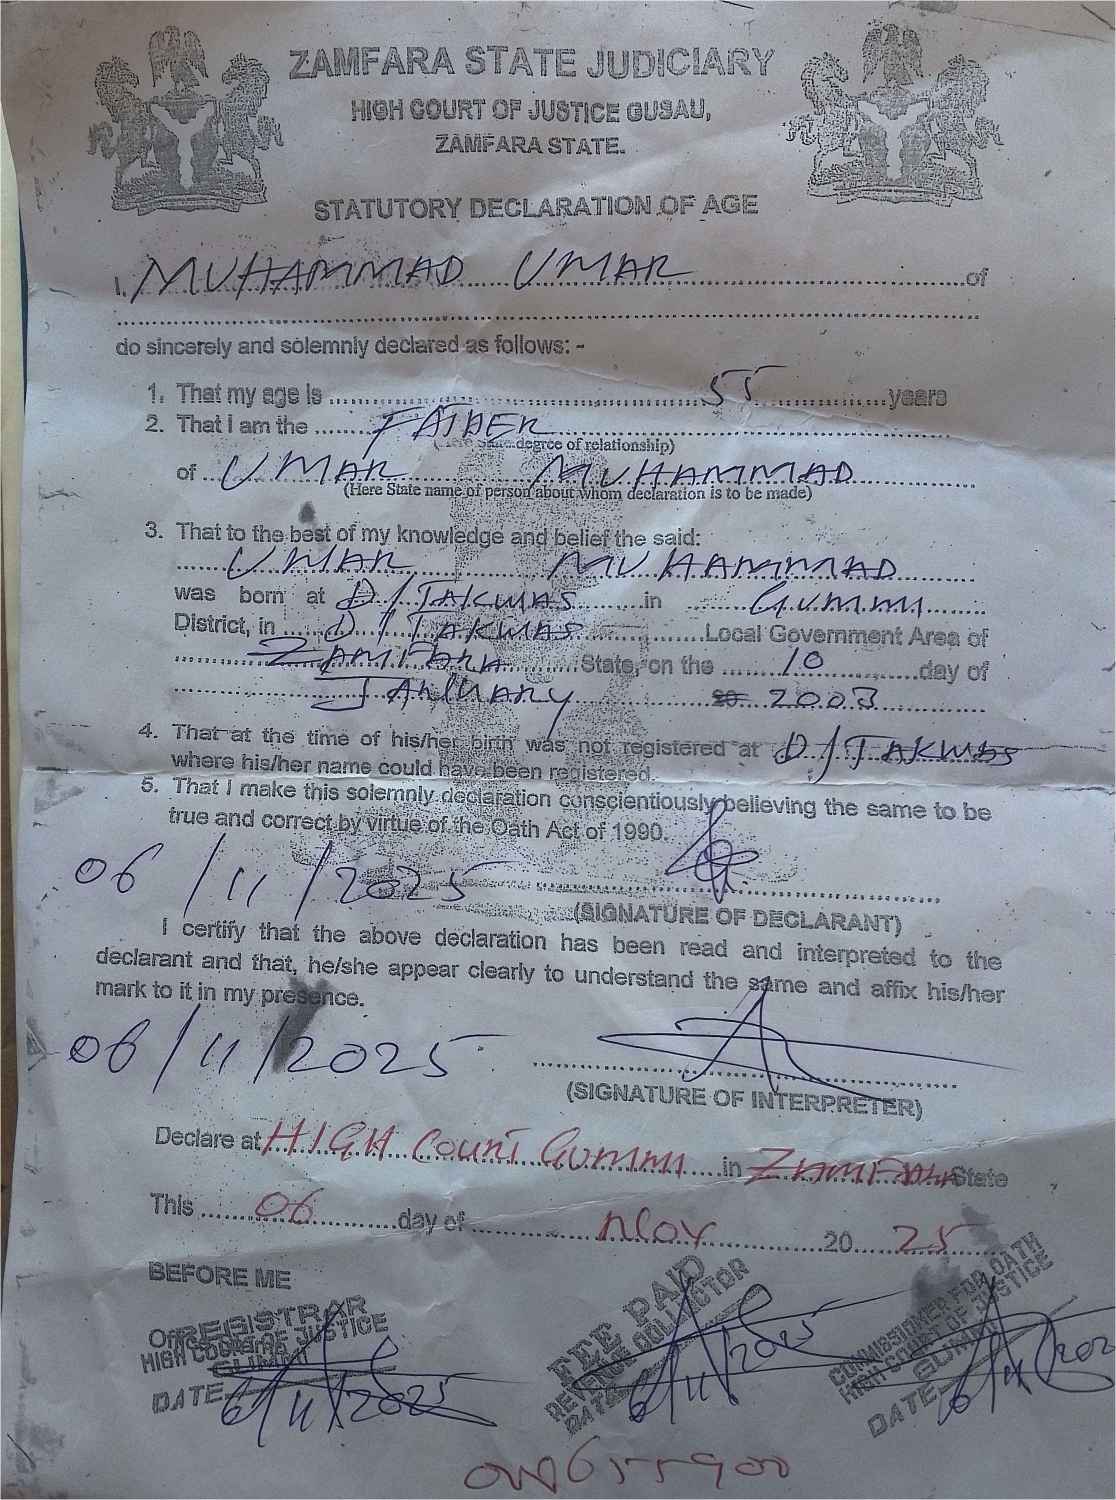 ZAMFARA STATE JUDICIARY
HIGH COURT OF JUSTICE GUSAU,
ZAMFARA STATE.
STATUTORY DECLARATION OF AGE
I. MUHAMMAD UMAR of
do sincerely and solemnly declared as follows: -
1. That my age is 55 years
2. That I am the FATHER
(Here State degree of relationship)
of UMAR MUHAMMAD
(Here State name of person about whom declaration is to be made)
3. That to the best of my knowledge and belief the said:
UMAR MUHAMMAD
was born at D/TAKWAS in GUMMI
District, in D/TAKWAS Local Government Area of
ZAMFARA State, on the 10 day of
JANUARY 2003
4. That at the time of his/her birth was not registered at D/TAKWAS
where his/her name could have been registered.
5. That I make this solemnly declaration conscientiously believing the same to be
true and correct by virtue of the Oath Act of 1990.
06/11/2025
(SIGNATURE OF DECLARANT)
I certify that the above declaration has been read and interpreted to the
declarant and that, he/she appear clearly to understand the same and affix his/her
mark to it in my presence.
06/11/2025
(SIGNATURE OF INTERPRETER)
Declare at HIGH COURT GUMMI in ZAMFARA State
This 06 day of NOV 20 25
BEFORE ME
REGISTRAR
HIGH COURT OF JUSTICE
GUMMI
DATE 6/11/2025
FEE PAID
REVENUE COLLECTOR
DATE 6/11/2025
COMMISSIONER FOR OATH
HIGH COURT OF JUSTICE
GUMMI
DATE